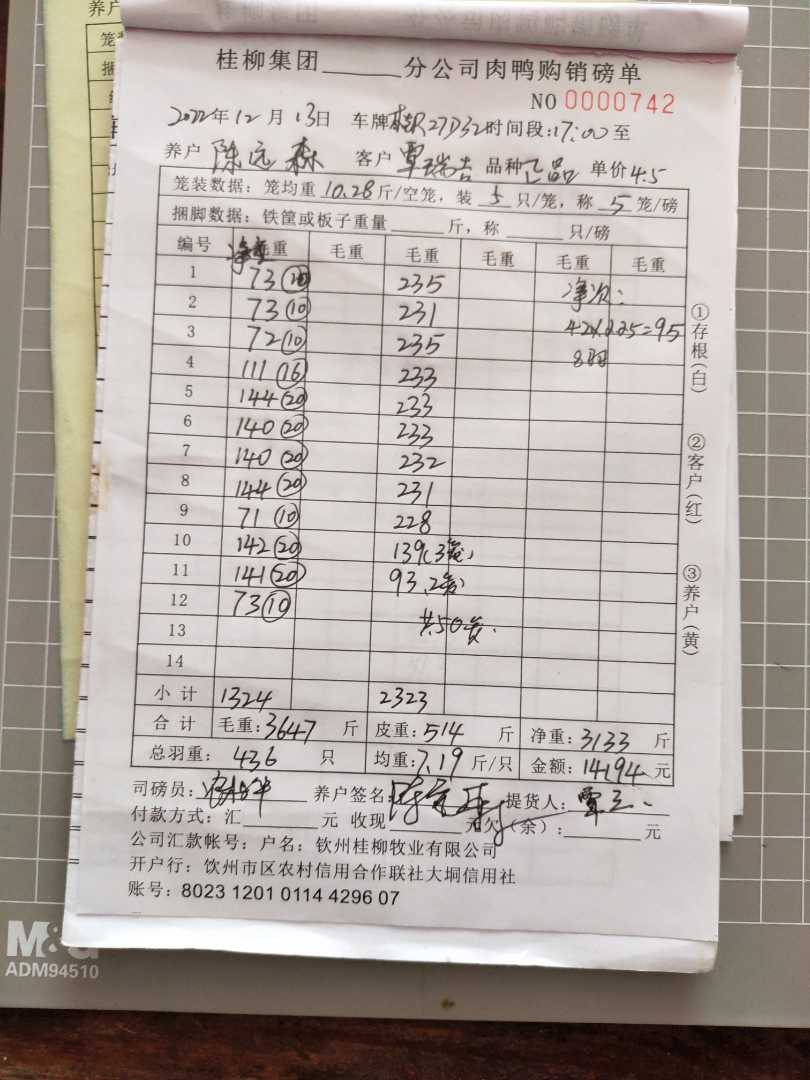 养户
笼
捆
桂柳集团______分公司肉鸭购销磅单
NO 0000742
2022年12月13日 车牌桂R27D32时间段:17:00至
养户 陈远森 客户 覃瑞吉 品种 正品 单价 4.5
笼装数据：笼均重 10.28 斤/空笼，装 5 只/笼，称 5 笼/磅
捆脚数据：铁筐或板子重量______斤，称______只/磅
编号 净重 毛重 毛重 毛重 毛重 毛重 毛重
1 73(10) 235 净次：
2 73(10) 231 42×2.25=95
3 72(10) 235
4 111(16) 233
5 144(20) 233
6 140(20) 233
7 140(20) 232
8 144(20) 231
9 71(10) 228
10 142(20) 139(3笼)
11 141(20) 93(2笼)
12 73(10)
13 共50笼.
14
小计 1324 2323
合计 毛重:3647 斤 皮重:514 斤 净重:3133 斤
总羽重：436 只 均重:7.19 斤/只 金额:14194 元
司磅员: 养户签名: 提货人:
付款方式：汇______元 收现______元欠（余）:______元
公司汇款帐号：户名：钦州桂柳牧业有限公司
开户行：钦州市区农村信用合作联社大垌信用社
账号：8023 1201 0114 4296 07
①存根(白)
②客户(红)
③养户(黄)
M&G
ADM94510